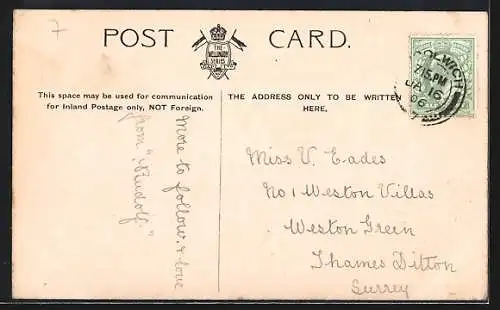 7
POST CARD.
THE
WELLINGTON
SERIES
This space may be used for communication
for Inland Postage only, NOT Foreign.
THE ADDRESS ONLY TO BE WRITTEN
HERE.
OOLWICH
7.15 PM
JA 16
06
More to follow. & love
from "Rudolf."
Miss V. Eades
No 1 Weston Villas
Weston Green
Thames Ditton
Surrey